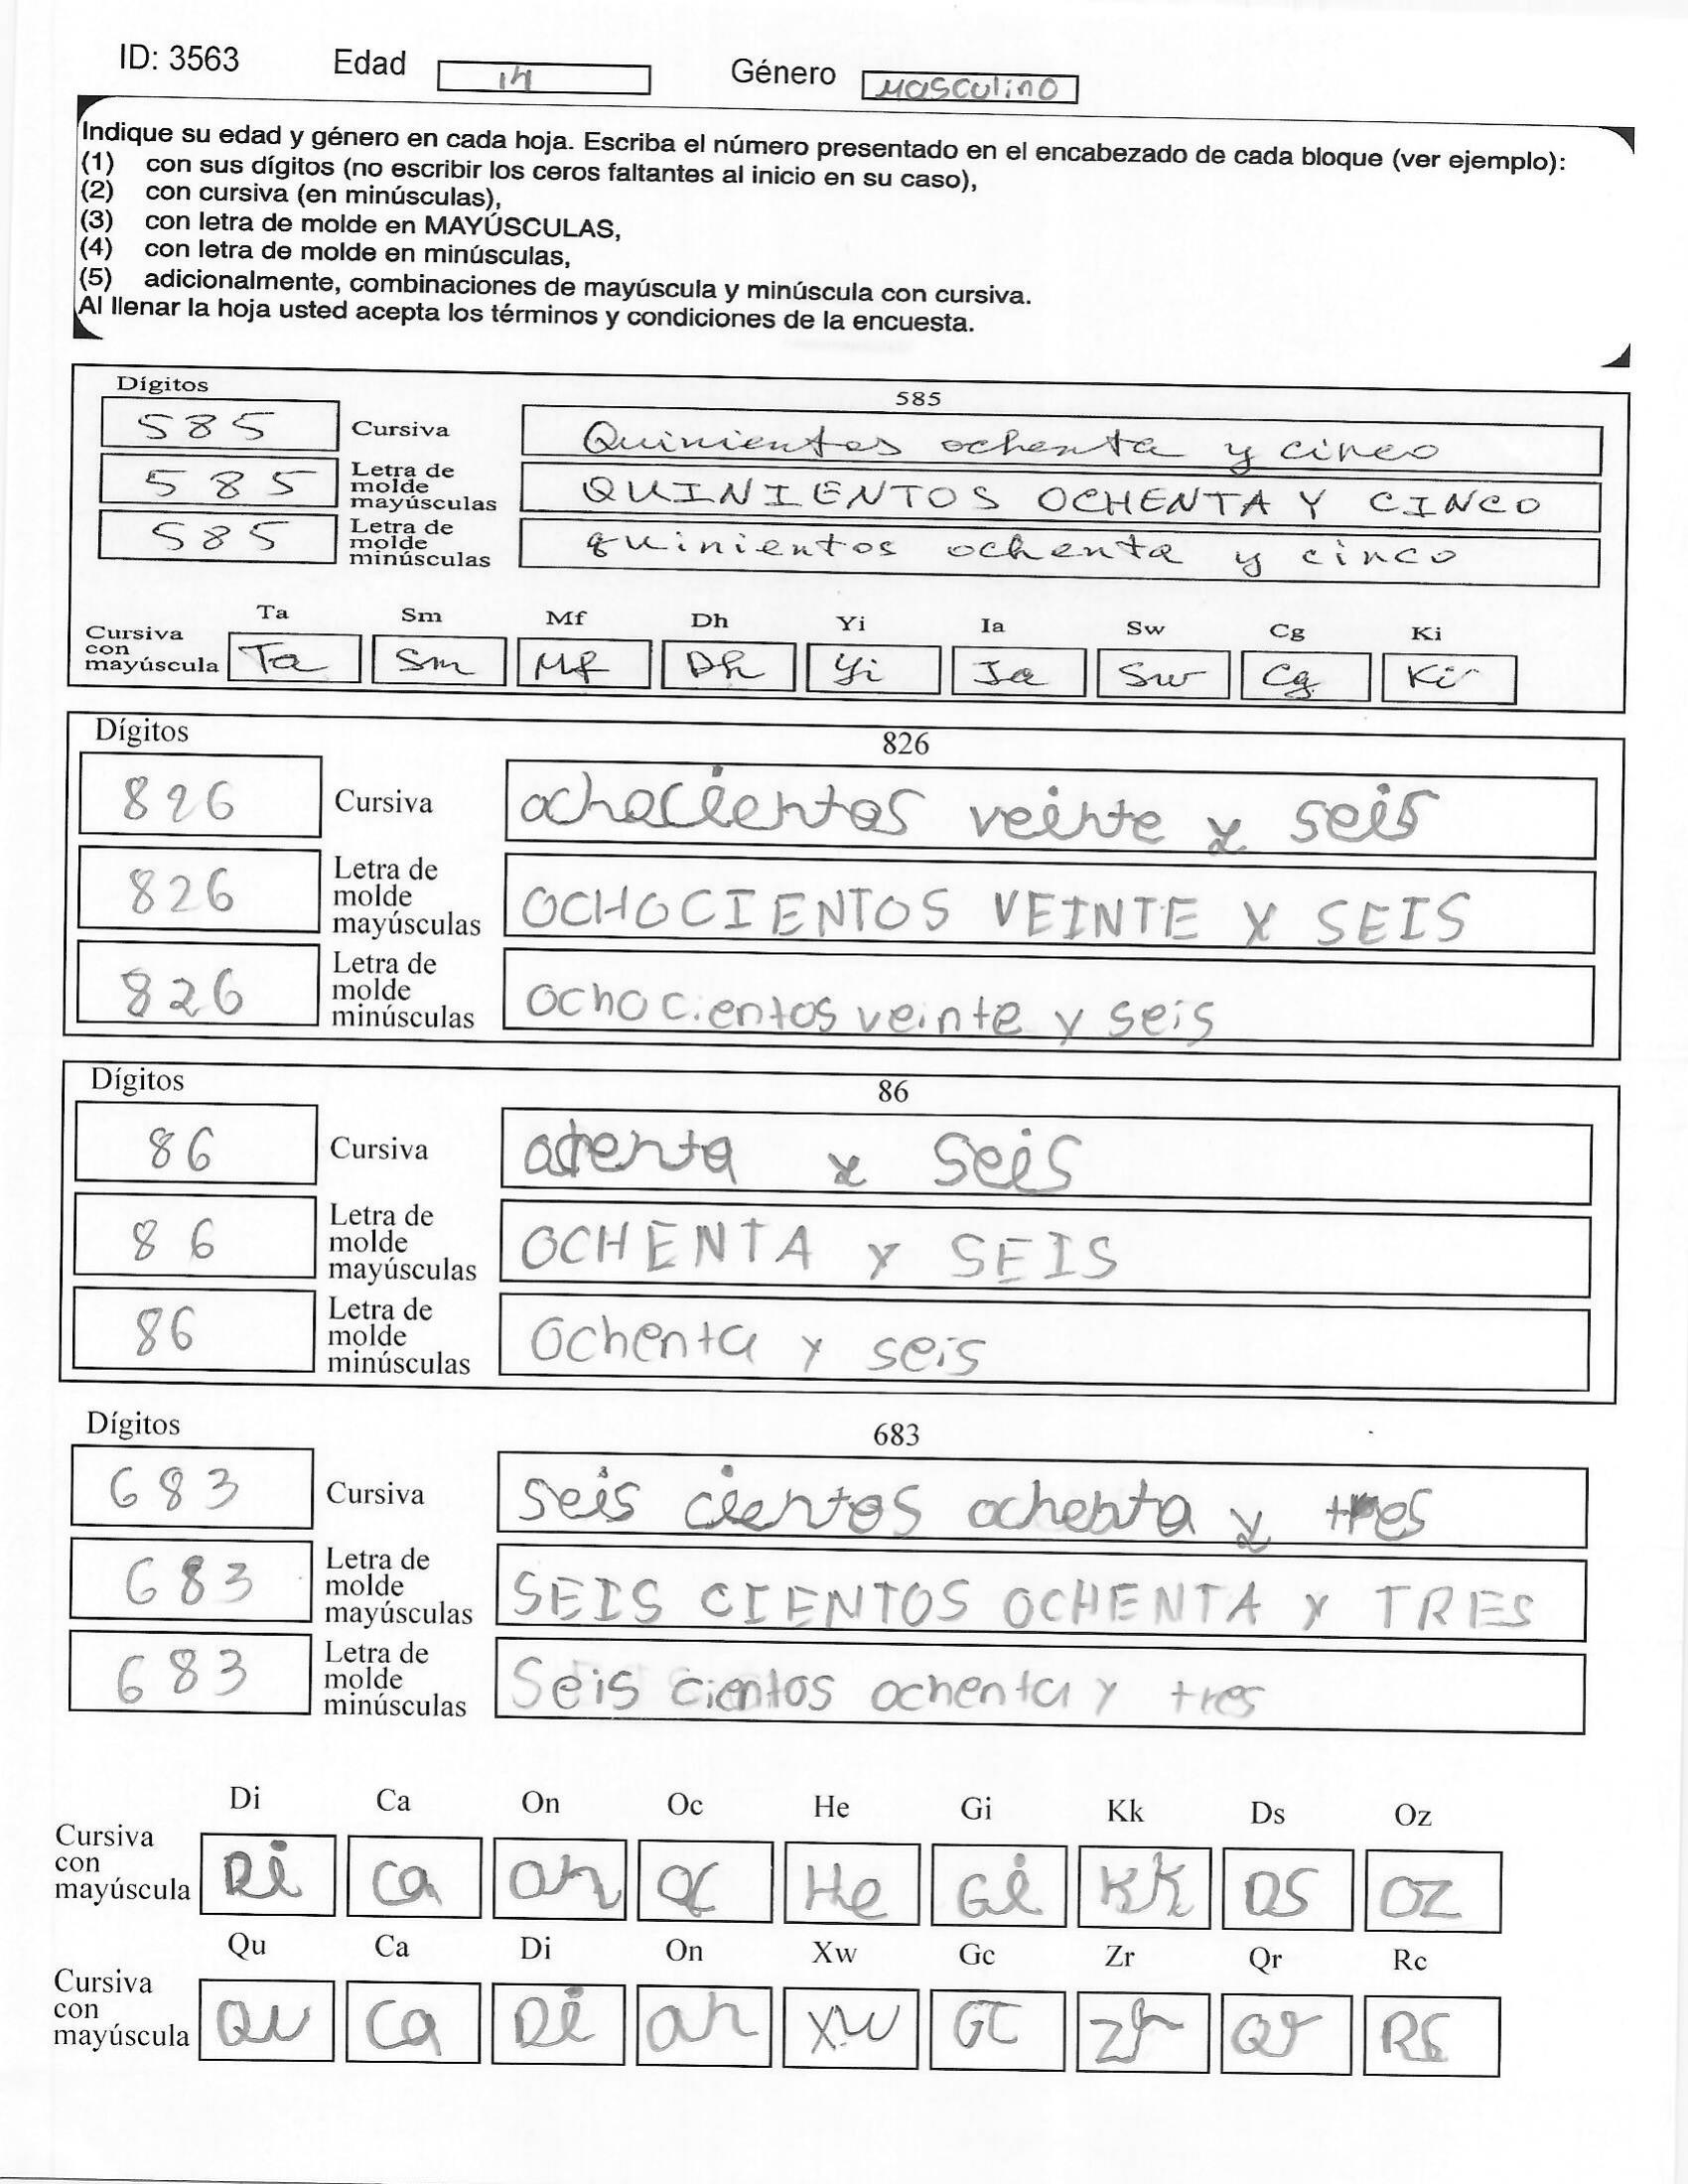 ID: 3563 Edad 14 Género Masculino
Indique su edad y género en cada hoja. Escriba el número presentado en el encabezado de cada bloque (ver ejemplo):
(1) con sus dígitos (no escribir los ceros faltantes al inicio en su caso),
(2) con cursiva (en minúsculas),
(3) con letra de molde en MAYÚSCULAS,
(4) con letra de molde en minúsculas,
(5) adicionalmente, combinaciones de mayúscula y minúscula con cursiva.
Al llenar la hoja usted acepta los términos y condiciones de la encuesta.
Dígitos 585
585 Cursiva Quinientos ochenta y cinco
585 Letra de molde mayúsculas QUINIENTOS OCHENTA Y CINCO
585 Letra de molde minúsculas quinientos ochenta y cinco
Ta Sm Mf Dh Yi Ia Sw Cg Ki
Cursiva con mayúscula Ta Sm Mf Dh Yi Ia Sw Cg Ki
Dígitos 826
826 Cursiva ochocientos veinte y seis
826 Letra de molde mayúsculas OCHOCIENTOS VEINTE Y SEIS
826 Letra de molde minúsculas ochocientos veinte y seis
Dígitos 86
86 Cursiva y seis
86 Letra de molde mayúsculas OCHENTA Y SEIS
86 Letra de molde minúsculas Ochenta y seis
Dígitos 683
683 Cursiva seis cientos ochenta y tres
683 Letra de molde mayúsculas SEIS CIENTOS OCHENTA Y TRES
683 Letra de molde minúsculas Seis cientos ochenta y tres
Di Ca On Oc He Gi Kk Ds Oz
Cursiva con mayúscula Di Ca On Oc He Gi Kk Ds Oz
Qu Ca Di On Xw Gc Zr Qr Rc
Cursiva con mayúscula Qu Ca Di On Xw Gc Zr Qr Rc